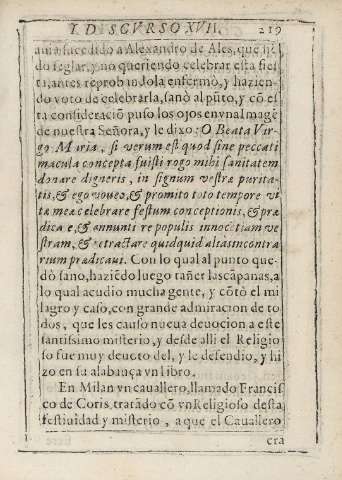 I. DISCVRSO XVII. 219
auia sucedido a Alexandro de Ales, que siẽ
do seglar, y no queriendo celebrar esta fies
ta, antes reprobandola enfermò, y hazien
do voto de celebrarla, sanò al pũto, y cõ es
ta consideraciõ puso los ojos en vna Imagẽ
de nuestra Señora, y le dixo: O Beata Vir-
go Maria, si verum est quod sine peccati
macula concepta fuisti rogo mihi sanitatem
donare digneris, in signum vestræ purita-
tis, & ego voueo, & promito toto tempore vi
tæ meæ celebrare festum conceptionis, & præ
dicare, & annuntiare populis innocẽtiam ve
stram, & retractare quidquid alias in contra
rium prædicaui. Con lo qual al punto que-
dò sano, haziẽdo luego tañer las cãpanas, a
lo qual acudio mucha gente, y cõtò el mi
lagro y caso, con grande admiracion de to
dos, que les causò nueua deuocion a este
santissimo misterio, y desde alli el Religio
so fue muy deuoto del, y le defendio, y hi
zo en su alabãça vn libro.
En Milan vn cauallero, llamado Francis
co de Coris, tratãdo cõ vn Religioso desta
festiuidad y misterio, a que el Cauallero
era